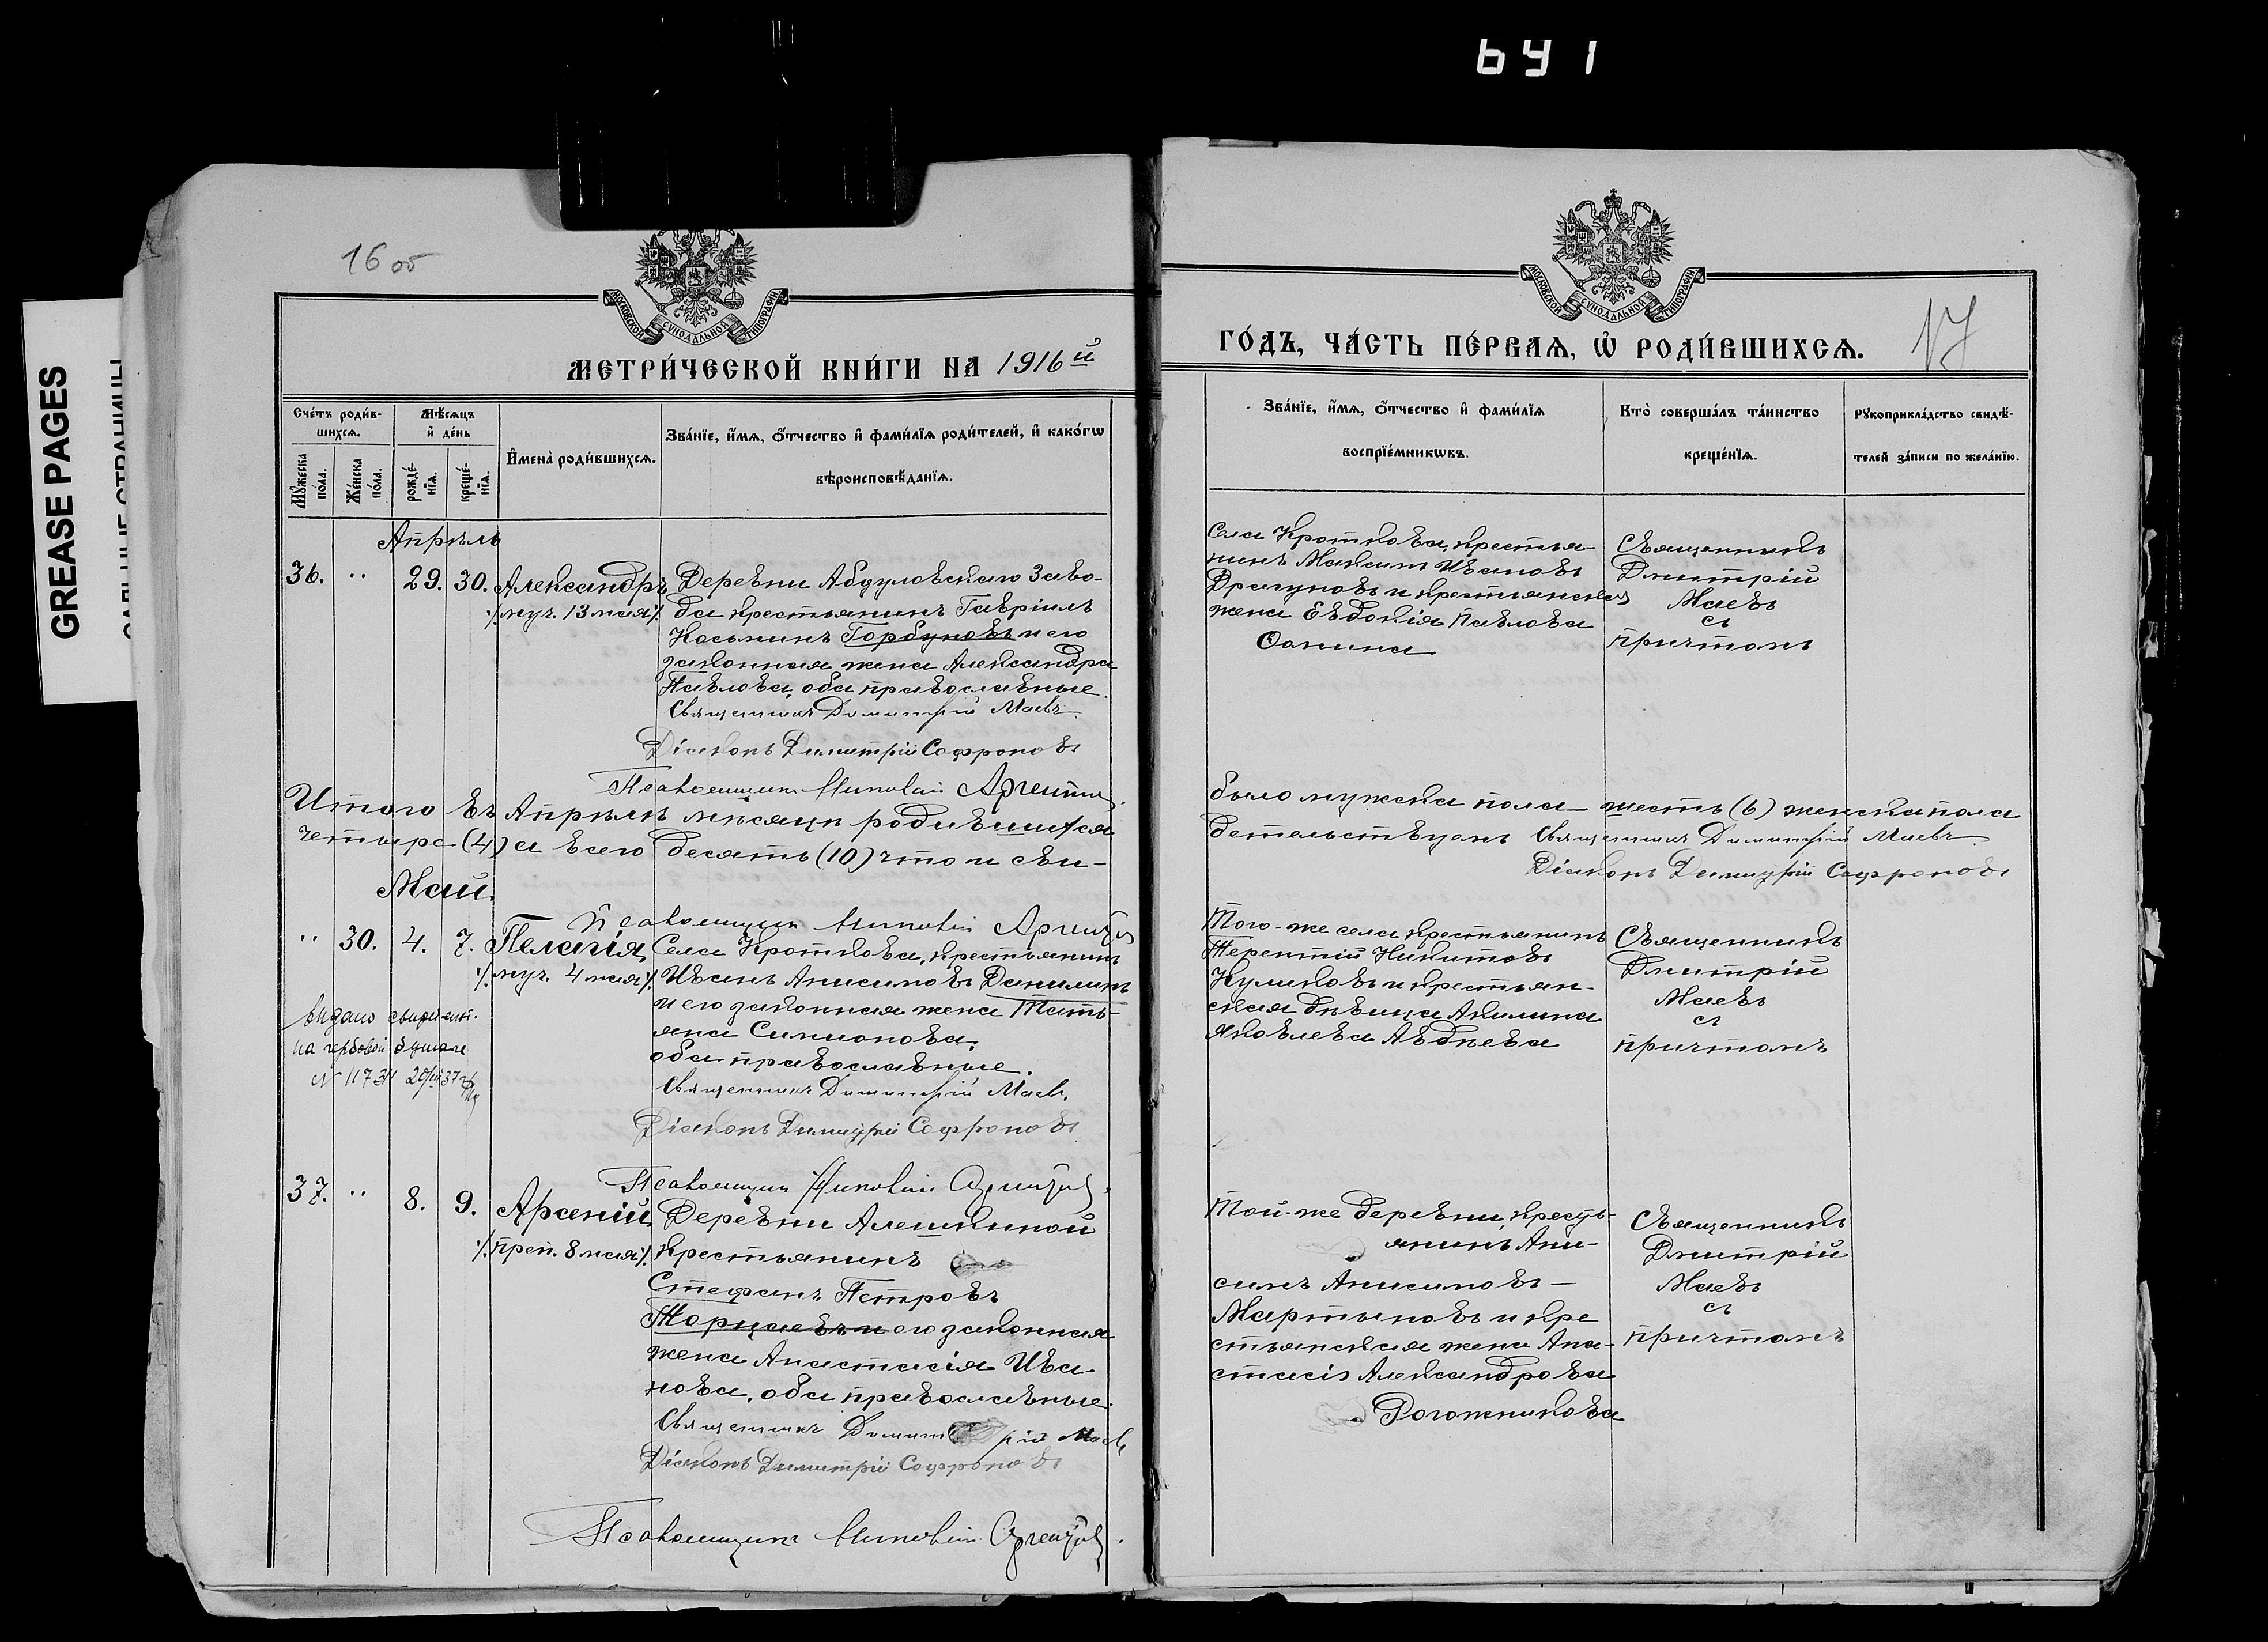 691
GREASE PAGES
16 об
МОСКОВСКОЙ СѴНОДАЛЬНОЙ ТИПОГРАФІИ
МЕТРИ́ЧЕСКОЙ КНИ́ГИ НА 1916й
Сче́тъ роди́в-
шихсѧ.
Мѣ́сѧцъ
и҆ де́нь
Мꙋ́жеска
по́ла.
Же́нска
по́ла.
рожде́-
нїѧ.
креще́-
нїѧ.
И҆мена̀ роди́вшихсѧ.
Зва́нїе, и҆́мѧ, ѻ҆́тчество и҆ фами́лїѧ роди́телей, и҆ како́гѡ
вѣроисповѣ́данїѧ.
Апрѣль
36. " 29. 30. Александръ
/.муч. 13 мая/.
Деревни Абдуловскаго Заво-
да крестьянинъ Гавріилъ
Косьминъ Горбуновъ и его
законная жена Александра
Павлова, оба православные.
Священникъ Димитрій Маевъ
Діаконъ Димитрій Софроновъ
Псаломщикъ
Итого въ Апрѣлѣ мѣсяцѣ родившихся
четыре (4) а всего десять (10) что и сви-
Май.
Псаломщикъ
" 30. 4. 7. Пелагія
/.муч. 4 мая/.
Села Кротковa, крестьянинъ
Иванъ Анисимовъ Данилинъ
и его законная жена Тать-
яна Симионова,
оба православные.
Священникъ Димитрій Маевъ
Діаконъ Димитрій Софроновъ
Псаломщикъ
выдано свидет.
на гербовой бумаге
N 11731
37. " 8. 9. Арсеній
/.преп. 8 мая/.
Деревни Алешкиной
крестьянинъ
Стефанъ Петровъ
Торцаевъ и его законная
жена Анастасія Ива-
нова, оба православные.
Священникъ Димитрій Маевъ
Діаконъ Димитрій Софроновъ
Псаломщикъ
МОСКОВСКОЙ СѴНОДАЛЬНОЙ ТИПОГРАФІИ
ГО́ДЪ, ЧА́СТЬ ПЕ́РВАѦ, Ѡ҆ РОДИ́ВШИХСѦ.
17
Зва́нїе, и҆́мѧ, ѻ҆́тчество и҆ фами́лїѧ
воспрїе́мникѡвъ.
Кто̀ соверша́лъ та́инство
креще́нїѧ.
Рꙋкоприкла́дство свидѣ́-
телей за́писи по жела́нїю.
Села Кроткова, крестья-
нинъ Максим Ивановъ
Драгуновъ и крестьянская
жена Евдокія Павлова
Фомина
Священникъ
Дмитрій
Маевъ
съ
причтомъ
было мужска пола - шесть (6) женска пола
детельствуемъ Священникъ Димитрій Маевъ
Діаконъ Димитрій Софроновъ
Того-же села, крестьянинъ
Терентій Никитовъ
Куликовъ и крестьян-
ская дѣвица Акилина
Яковлева Авдѣева
Священникъ
Дмитрій
Маевъ
съ
причтомъ
Той-же деревни, кресть-
янинъ Ани-
симъ Анисимовъ -
Мартыновъ и кре
стьянская жена Ана-
стасія Александрова
Рогожникова
Священникъ
Дмитрій
Маевъ
съ
причтомъ